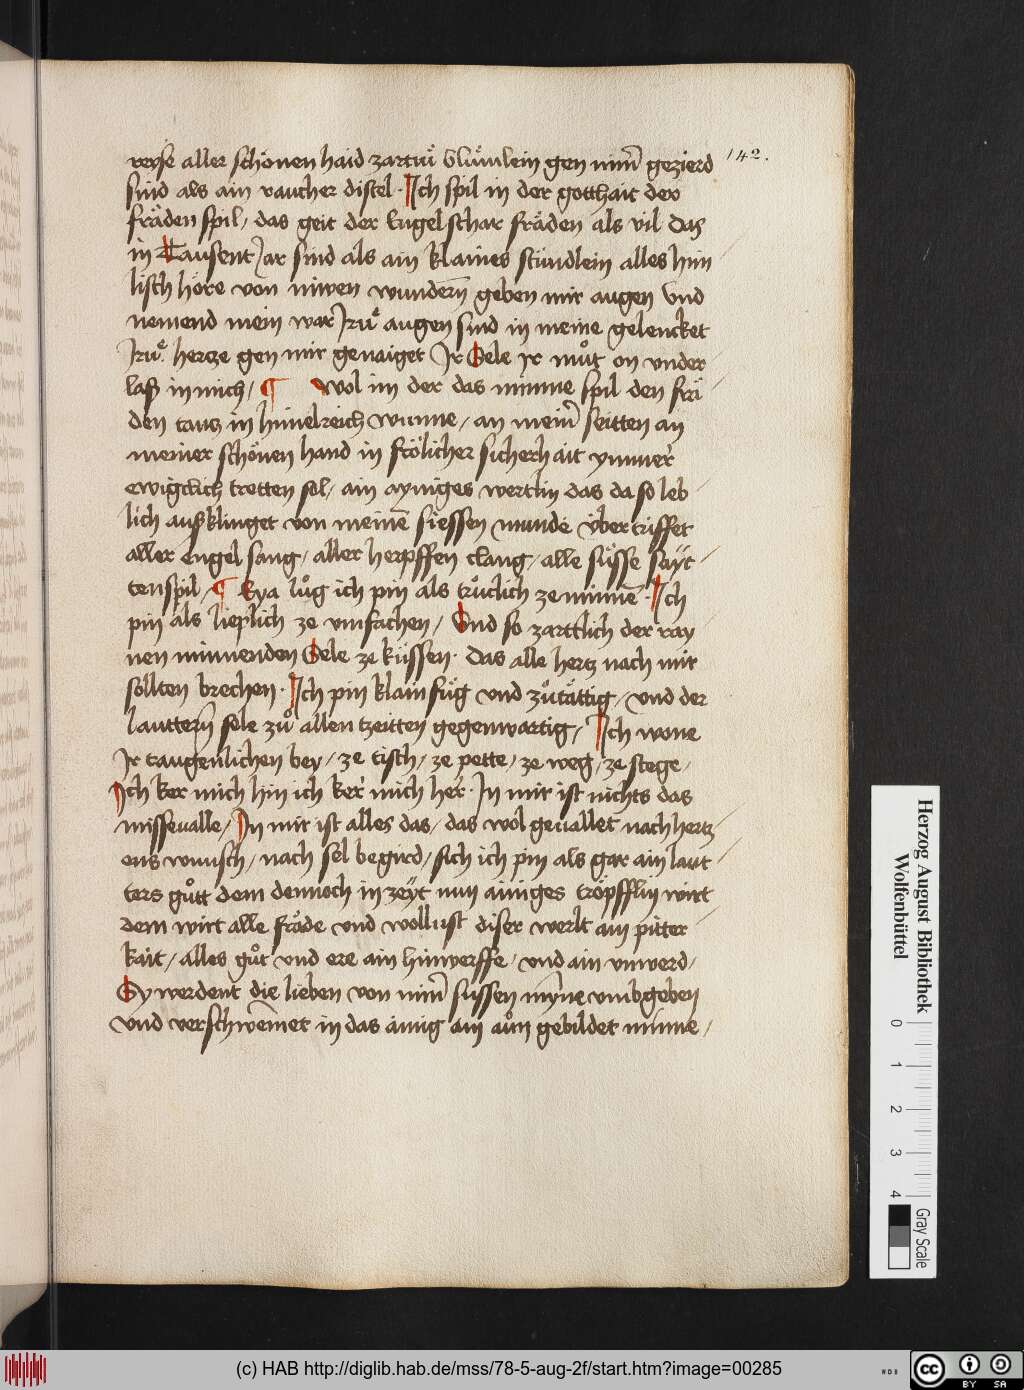 142.
reyse aller schönen haid zartuͥ bluͤmlein gen mim̄ gezierd
sind als ain raucher distel · Ich spil in der gotthait der
fräden spil / das geit der Engel schar fräden als vil das
in Tausent Jar sind als ain klaines stündlein alles him
lisch höre von niwen wundern̄ geben mir augen Vnd
nemend mein war Iruͤ augen sind in meine gelencket
Iruͤ hertze gen mir genaiget Ir Sele yr muͦt on vnder
laß in mich / ¶ Wol im der das minne spil den frä
den tantz in himelreich wunne / an meim̄ seitten an
meiner schönen hand in frölicher sicherhait ymmer
ewigclich tretten sol / ain ayniges wertlin das da so leb
lich außklinget von meinē siessen munde übertriffet
aller engel sang / aller herpffen clang / alle süsse sayt
tenspil / ¶ Eya luͦg ich pin als trütlich ze minnē · Ich
pin als lieplich ze vmfachen / Vnd so zarttlich der ray
nen minnenden Sele ze küssen · das alle hertz nach mir
söllten brechen · Ich pin klainfuͤg vnd zuͦtättig / vnd der
lauttern̄ sele zuͦ allen tzeitten gegenwartig / Ich wone
Ir taugenlichen bey / ze tisch / ze pette / ze weg / ze stege /
Ich ker mich hin ich ker mich her · In mir ist nichts das
misseualle / In mir ist alles das / das wol geuallet nach hertz
ens wunsch / nach sel begird / sich ich pin als gar ain laut
ters guͦtt dem dennoch in zeyt nun ainiges tröpfflin wirt
dem wirt alle fräde vnd wollust diser werlt ain pitter
kait / alles guͦt vnd ere ain hinwerffe / vnd ain vnwerd /
Sy werdent die lieben von mim̄ süssen myn̄e vmbgeben
vnd verschwemet in das ainig ain aun gebildet minne /
Herzog August Bibliothek
Wolfenbüttel
0 1 2 3 4
Gray Scale
(c) HAB http://diglib.hab.de/mss/78-5-aug-2f/start.htm?image=00285
WDB
cc BY SA